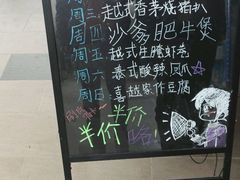 周三 越式香茅烧猪扒
周四 沙爹肥牛煲
周五 越式生腌虾
周六 泰式酸辣凤爪☆
周日 喜越家作豆腐
半价
半价